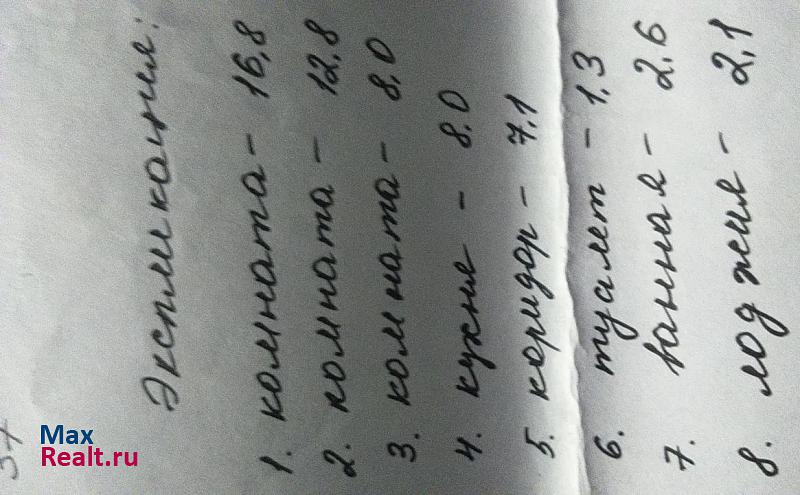 Экспликация:
1. комната - 16,8
2. комната - 12,8
3. комната - 8,0
4. кухня - 8,0
5. коридор - 7,1
6. туалет - 1,3
7. ванная - 2,6
8. лоджия - 2,1
Max
Realt.ru